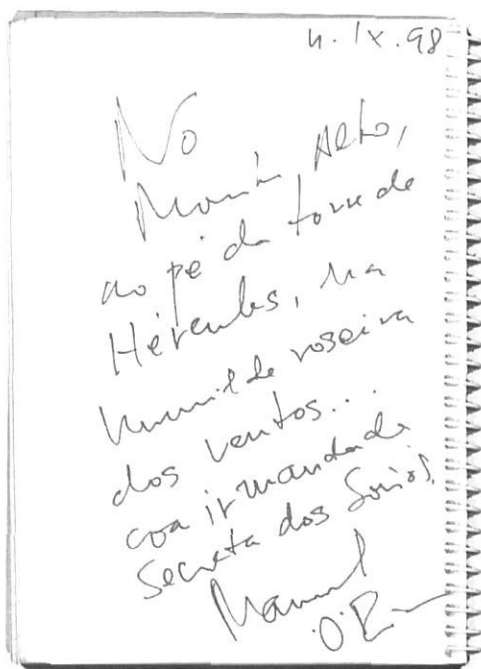 4.IX.98
No
Monte Alto,
ao pé da torre de
Hércules, na
humilde roseira
dos ventos...
coa irmandade
Secreta dos Soños.
Manuel